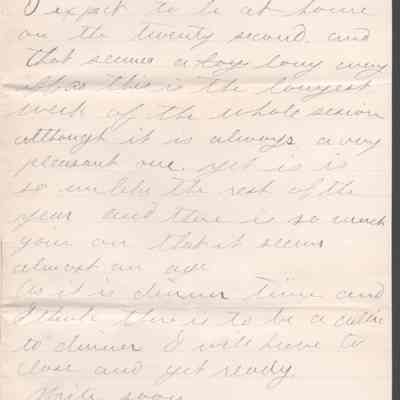 I expect to be at home
on the twenty second. and
that seems a long way
off as this is the longest
week of the whole session
although it is always a very
pleasant one. yet is is
so unlike the rest of the
year and there is so much
goin on that it seems
almost an age
As it is dinner time and
I think there is to be a
to dinner I will have to
close and get ready
Write soon